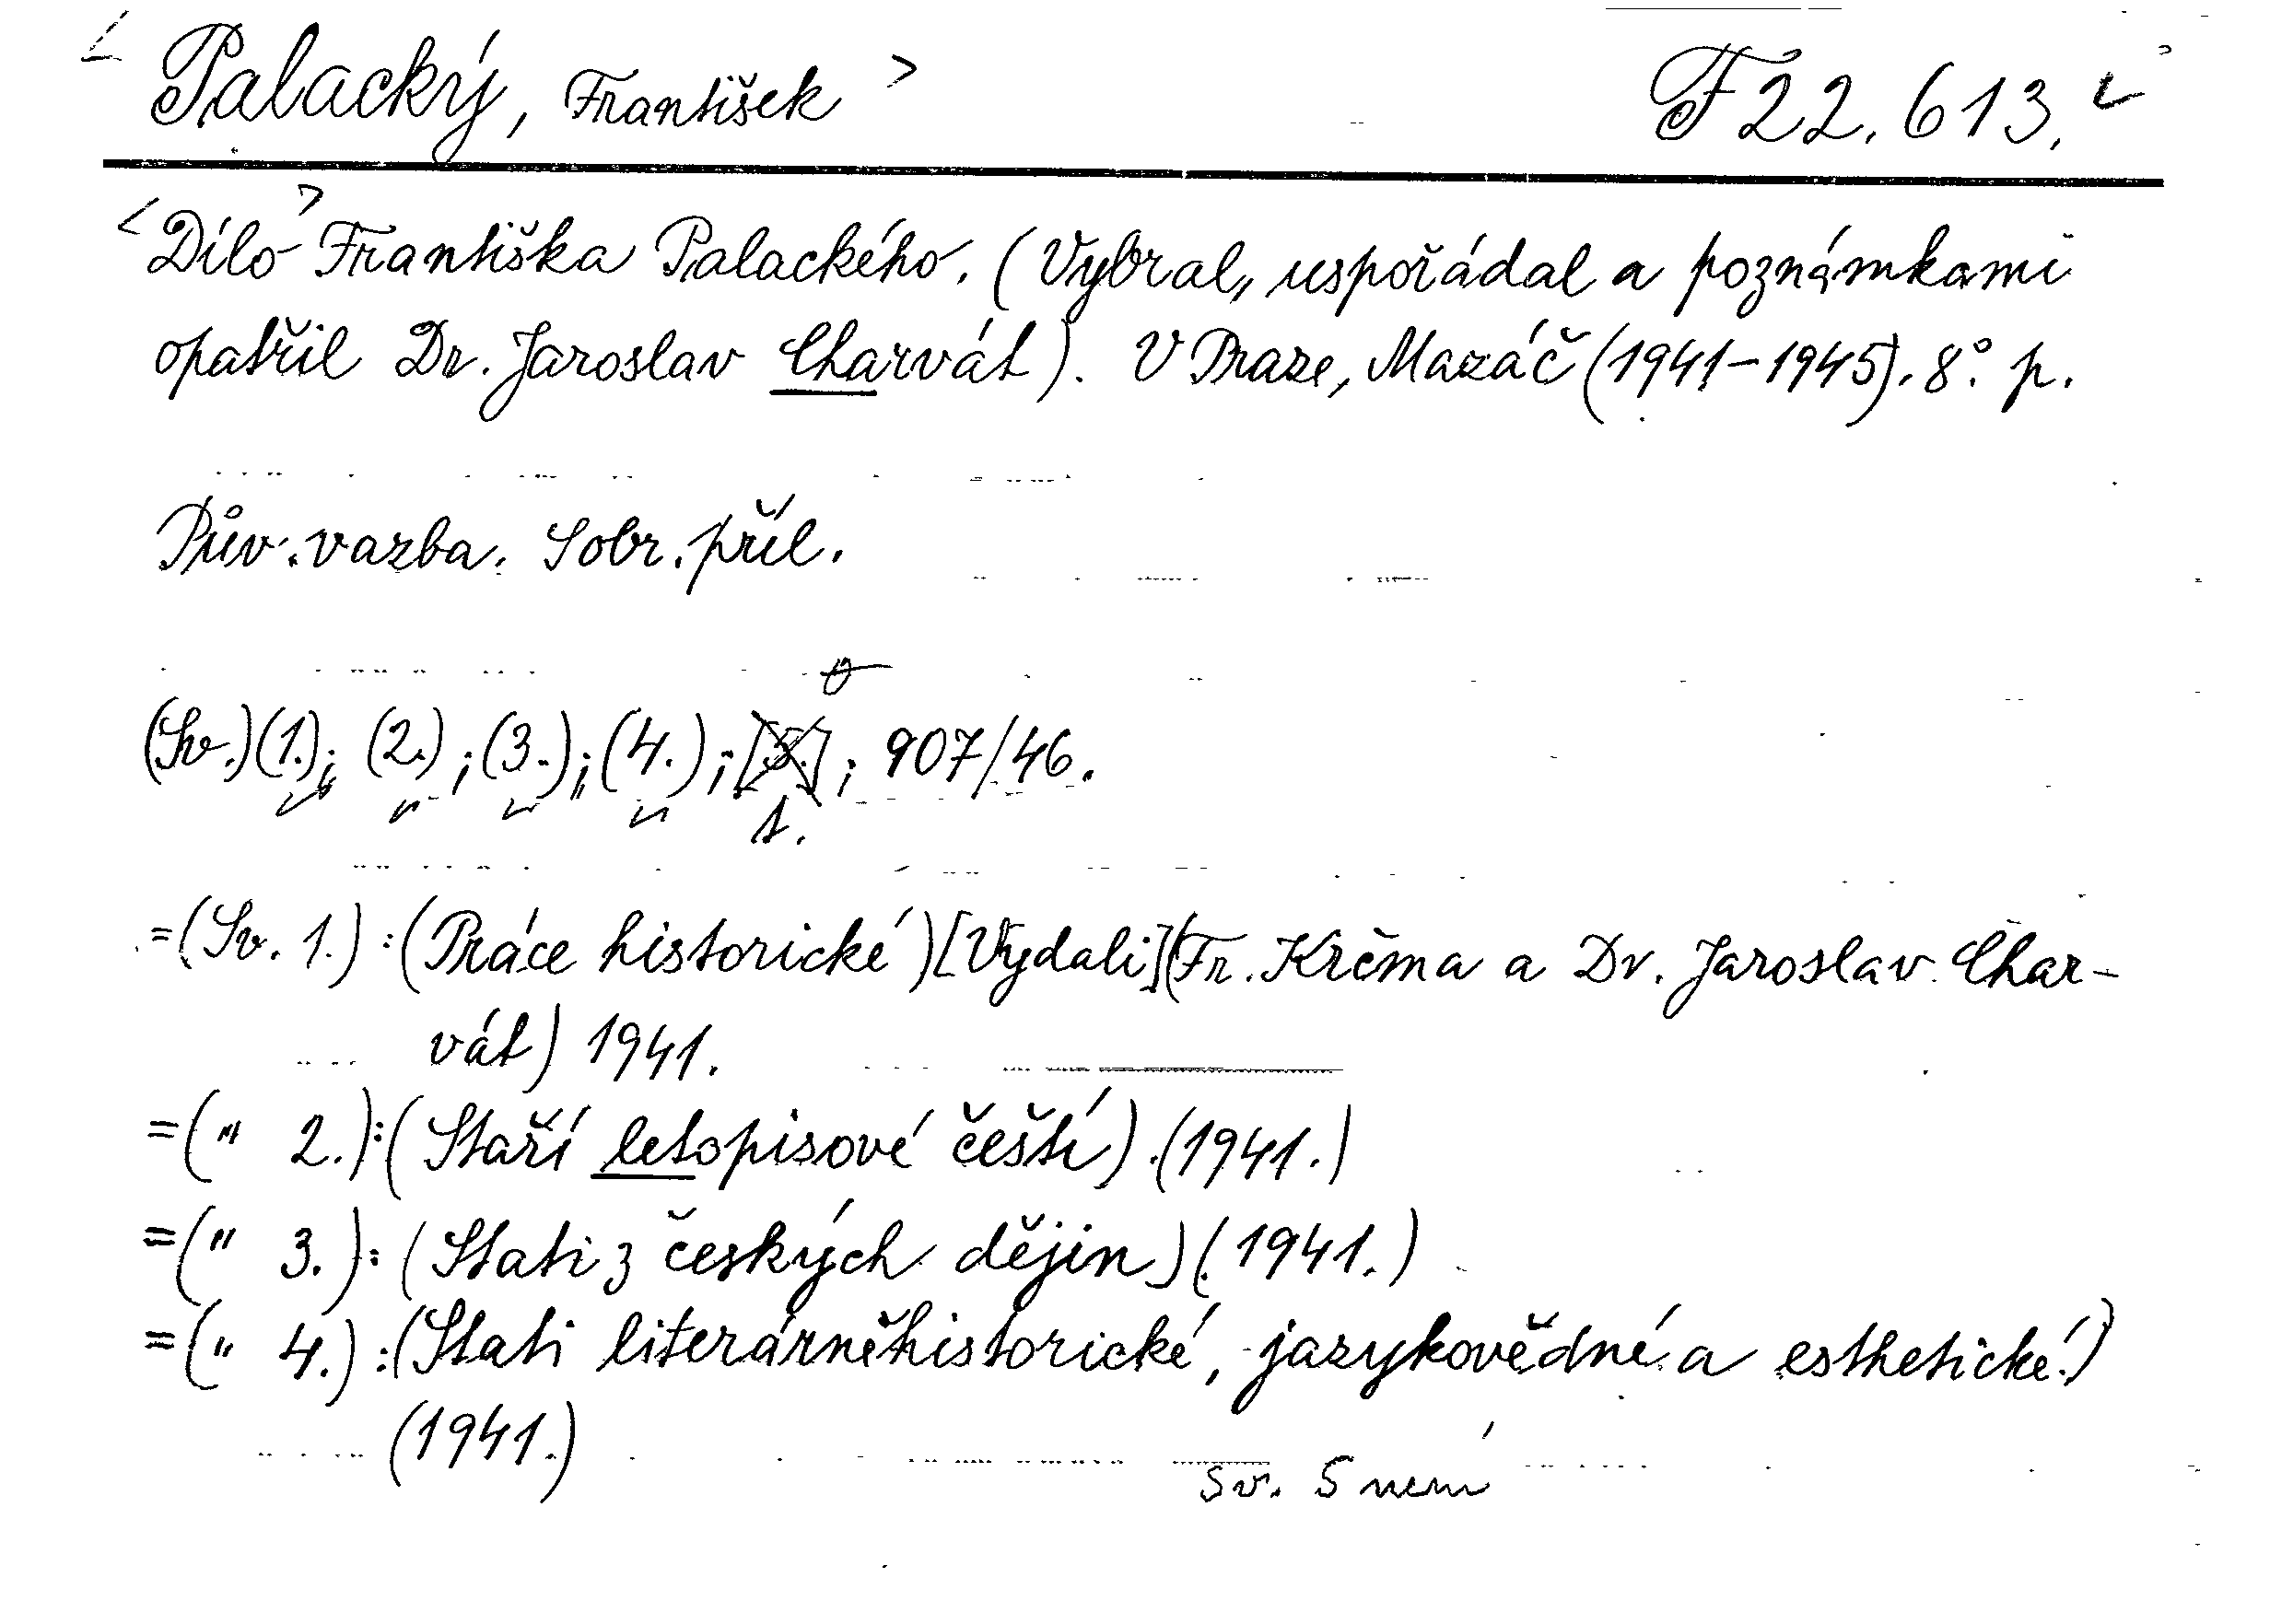 < Palacký, František > F 22.613.
<Dílo> Františka Palackého. (Vybral, uspořádal a poznámkami
opatřil Dr. Jaroslav Charvát). V Praze, Mazáč (1941-1945). 8° p.
Pův. vazba. Sobr. příl.
(Sv.)(1.); (2.); (3.); (4.); [5.]; 907/46.
= (Sv. 1.) : (Práce historické) [Vydali] (Fr. Krčma a Dr. Jaroslav Char-
vát) 1941.
= („ 2.) : (Staří letopisové čeští). (1941.)
= („ 3.) : (Stati z českých dějin) (1941.)
= („ 4.) : (Stati literárněhistorické, jazykovědné a esthetické.)
(1941.)
Sv. 5 není